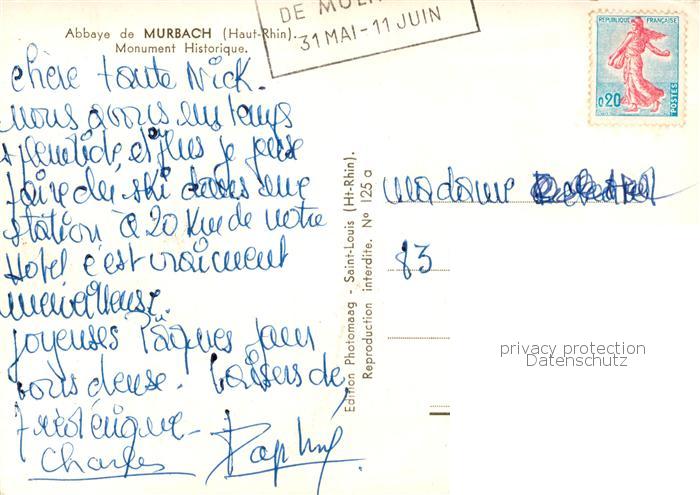 Abbaye de MURBACH (Haut-Rhin).
Monument Historique.
31 MAI - 11 JUIN
REPUBLIQUE FRANÇAISE
0,20
POSTES
chère tante Nick.
nous avons un temps
splendide, et plus je peux
faire du ski dans une
station à 20 km de notre
Hotel c'est vraiment
merveilleux.
Joyeuses Pâques pour
vous deuse. baisers de,
Frédérique -
Charles
Edition Photomaag - Saint-Louis (Ht-Rhin).
Reproduction interdite. N° 125 a
madame
83
privacy protection
Datenschutz